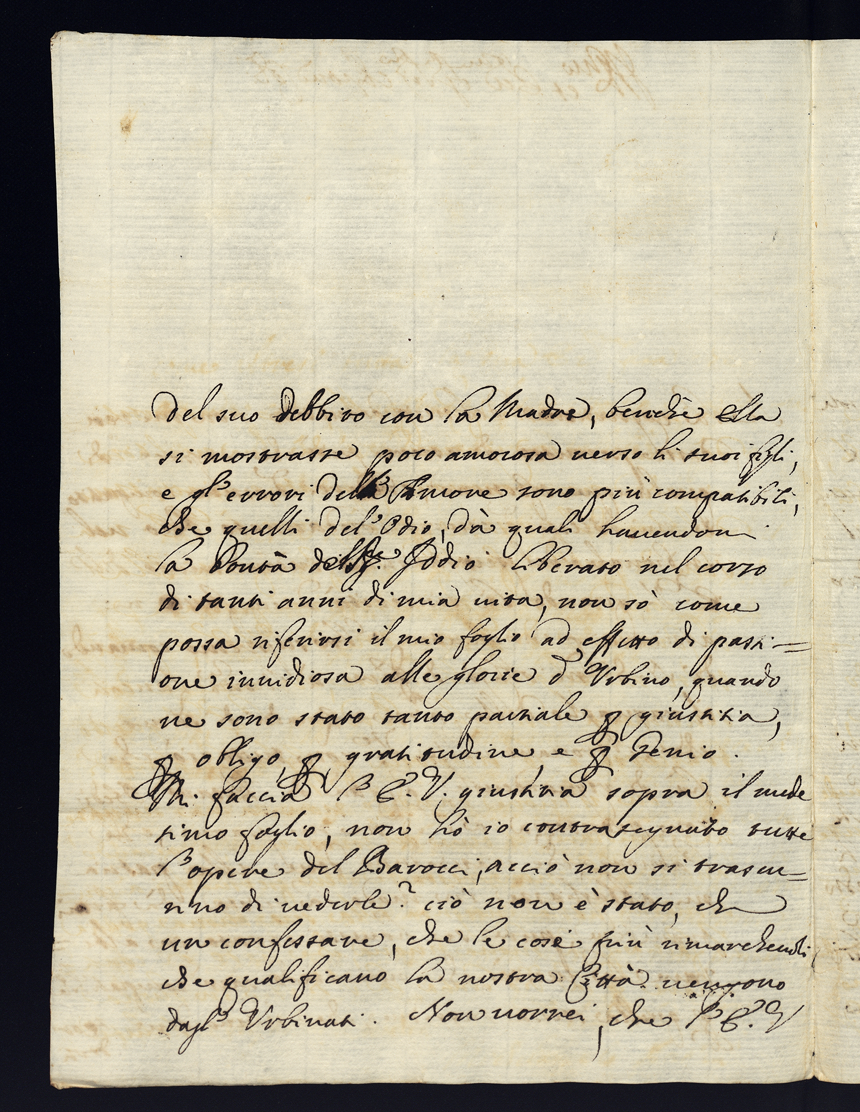 del suo debbito con la Madre, benche ella
si mostrasse poco amorosa verso li suoi figli,
e gl'errori dell'Amore sono più compatibili,
che quelli del'Odio, dà quali havendomi
la Bontà dell' Iddio liberato nel corso
di tanti anni di mia vita, non sò come
possa riferirsi il mio foglio ad effetto di passi=
one invidiosa alle glorie d'Urbino, quando
ne sono stato tanto partiale p giustitia,
p obligo, p gratitudine, e p Genio.
Mi faccia l'E. V. giustitia sopra il mede
simo foglio, non hò io contrasegnato tutte
l'opere del Barocci, acciò non si trascu=
rino di vederle? ciò non è stato, che
un confessare, che le cose più rimarchevoli
che qualificano la nostra Città vengono
dagl'Urbinati. Non vorrei, che l'E. V